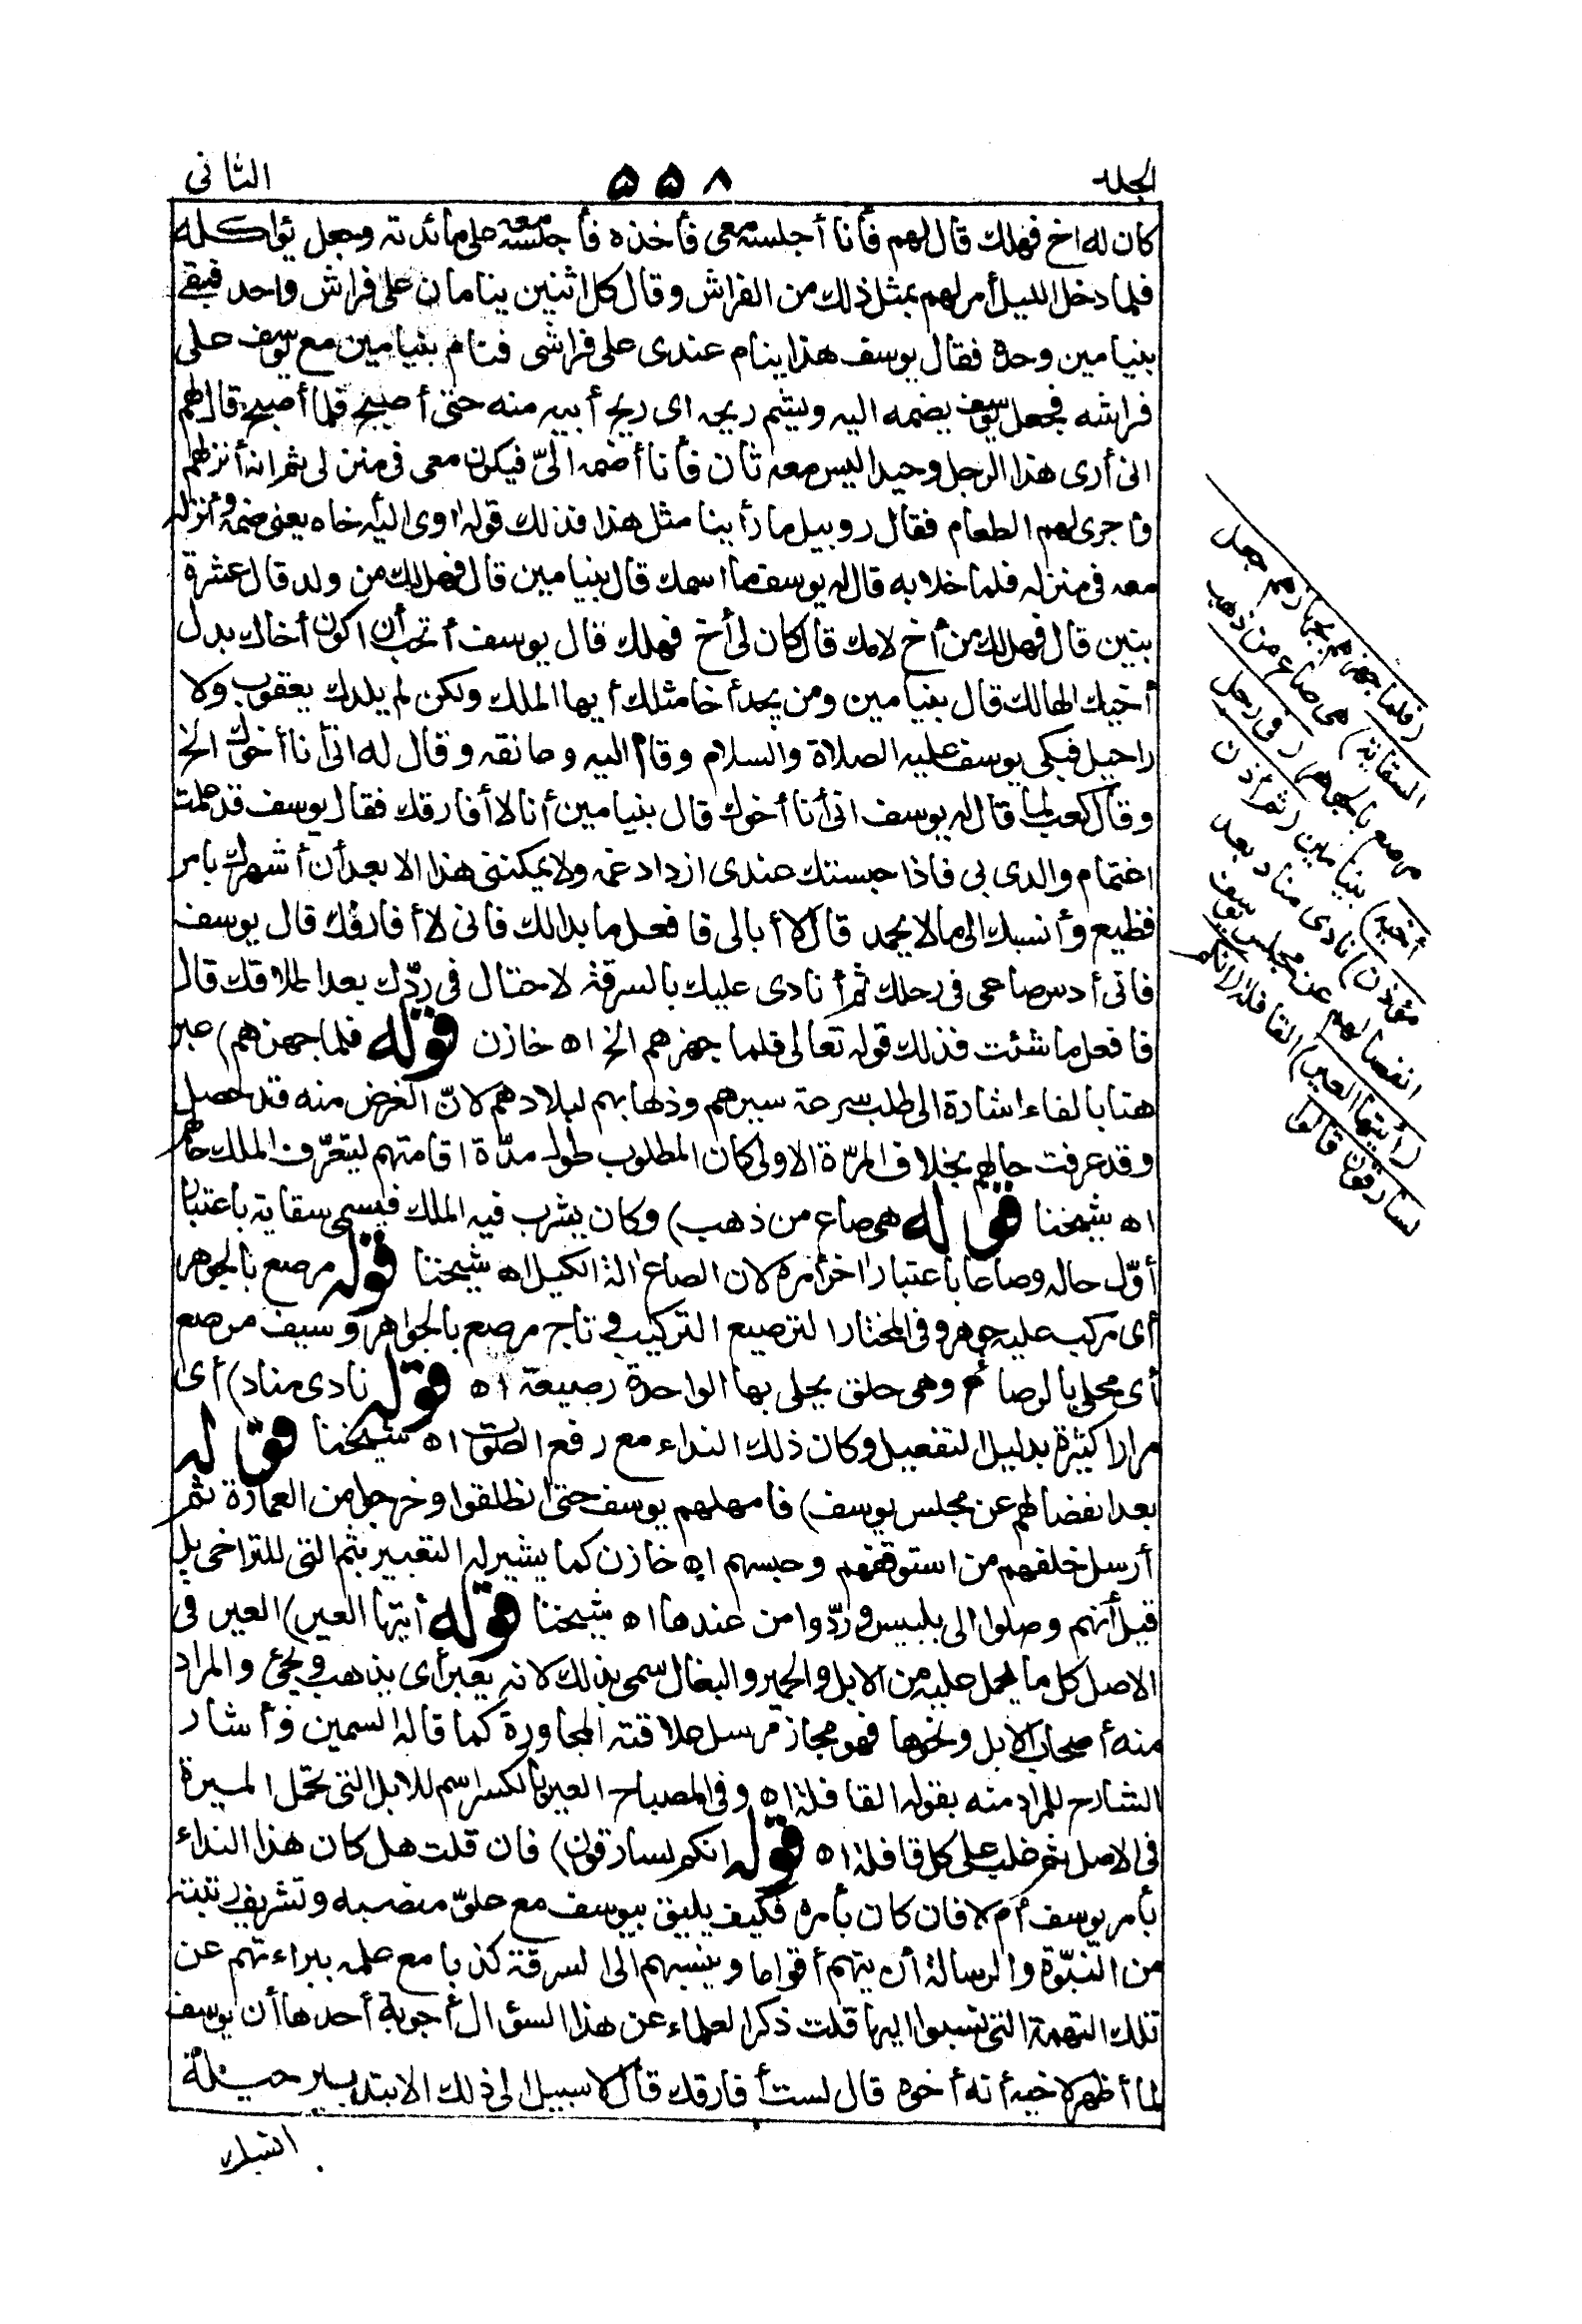 الجلد ٥٥٨ الثاني
كان له اخ فهلك قال لهم فأنا أجلسته معى فأخذه فأجلسه معه على مائدته وجعل يؤاكله
فلما دخل الليل أمر لهم بمثل ذلك من الفراش وقال كل اثنين ينامان على فراش واحد فبقى
بنيامين وحده فقال يوسف هذا ينام عندى على فراشى فنام بنيامين مع يوسف على
فراشه فجعل يوسف يضمه اليه ويشم ريحه اى ريح أبيه منه حتى أصبح فلما أصبح قال لهم
انى أرى هذا الرجل وحيدا ليس معه ثان فأنا أضمه الىّ فيكون معى فى منزلى ثم انه أنزلهم
وأجرى لهم الطعام فقال روبيل ما رأينا مثل هذا فذلك قوله اوى اليه خاه يعنى ضمه وأنزله
معه فى منزله فلما خلا به قال له يوسف ما اسمك قال بنيامين قال فهل لك من ولد قال عشرة
بنين قال فهل لك من أخ لامك قال كان لى أخ فهلك قال يوسف أتحب أن اكون أخاك بدل
أخيك الهالك قال بنيامين ومن يجد أخا مثلك أيها الملك ولكن لم يلدك يعقوب ولا
راحيل فبكى يوسف عليه الصلاة والسلام وقام اليه وعانقه وقال له انى أنا أخوك الخ
وقال كعب لما قال له يوسف انى أنا أخوك قال بنيامين أنا لا أفارقك فقال يوسف قد علمت
اغتمام والدى بى فاذا حبستك عندى ازداد غمه ولا يمكننى هذا الا بعد أن أشهرك بامر
فظيع وأنسبك الى ما لا يحمد قال لا أبالى فافعل ما بدا لك فانى لا أفارقك قال يوسف
فانى أدس صاعى فى رحلك ثم أنادى عليك بالسرقة لاحتال فى ردّك بعد اطلاقك قال
فافعل ما شئت فذلك قوله تعالى فلما جهزهم الخ اه خازن قوله فلما جهزهم) عبر
هنا بالفاء اشارة الى طلب سرعة سيرهم وذهابهم لبلادهم لانّ الغرض منه قد حصل
وقد عرفت حالهم بخلاف المرّة الاولى كان المطلوب طول مدّة اقامتهم ليتعرّف الملك حالهم
اه شيخنا قوله هى صاع من ذهب) وكان يشرب فيه الملك فيسمى سقاية باعتبار
أوّل حاله وصاعا باعتبار اخر أمره لان الصاع الة الكيل اه شيخنا قوله مرصع بالجوهر
أى مركب عليه جوهر وفى المختار الترصيع التركيب وتاج مرصع بالجواهر وسيف مرصع
أى محلى بالرصائع وهى حلق يحلى بها الواحدة رصيعة اه قوله نادى مناد) أى
مرارا كثيرة بدليل التفعيل وكان ذلك النداء مع رفع الصوت اه شيخنا قوله
بعد انفصالهم عن مجلس يوسف) فامهلهم يوسف حتى انطلقوا وخرجوا من العمارة ثم
أرسل خلفهم من استوقفهم وحبسهم اه خازن كما يشير له التعبير بثم التى للتراخى بل
قيل أنهم وصلوا الى بلبيس وردّوا من عندها اه شيخنا قوله أيتها العير) العير فى
الاصل كل ما يحمل عليه من الابل والحمير والبغال سمى بذلك لانه يعير أى يذهب ويجئ والمراد
منه أصحاب الابل ونحوها فهو مجاز مرسل علاقته المجاورة كما قاله السمين وأشار
الشارح للمراد منه بقوله القافلة اه وفى المصباح العير بالكسر اسم للابل التى تحمل الميرة
فى الاصل ثم غلب على كل قافلة اه قوله انكم لسارقون) فان قلت هل كان هذا النداء
بأمر يوسف أم لا فان كان بأمره فكيف يليق بيوسف مع علوّ منصبه وتشريف رتبته
من النبوّة والرسالة أن يتهم أقواما وينسبهم الى السرقة كذبا مع علمه ببراءتهم عن
تلك التهمة التى نسبوا اليها قلت ذكر العلماء عن هذا السؤال أجوبة أحدها أن يوسف
لما أظهر لاخيه أنه أخوه قال لست أفارقك قال لا سبيل الى ذلك الا بتدبير حيلة
(فلما جهزهم بجهازهم جعل
السقاية) هى صاع من ذهب
مرصع بالجواهر (فى رحل
أخيه) بنيامين (ثم أذن
مؤذن) نادى مناد بعد
انفصالهم عن مجلس يوسف
(أيتها العير) القافلة (انكم
لسارقون قالوا